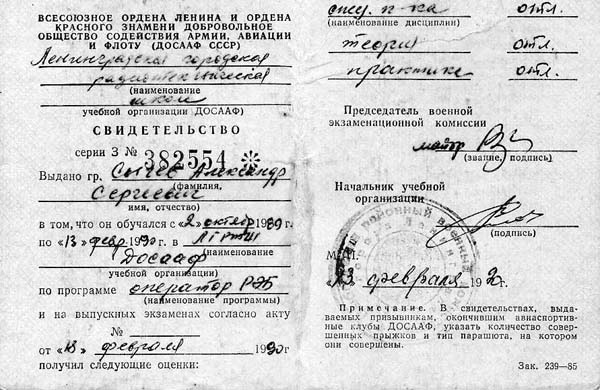 ВСЕСОЮЗНОЕ ОРДЕНА ЛЕНИНА И ОРДЕНА
КРАСНОГО ЗНАМЕНИ ДОБРОВОЛЬНОЕ
ОБЩЕСТВО СОДЕЙСТВИЯ АРМИИ, АВИАЦИИ
И ФЛОТУ (ДОСААФ СССР)
Ленинградская городская
радиотехническая
(наименование
школа
учебной организации ДОСААФ)
СВИДЕТЕЛЬСТВО
серии З № 382554 *
Выдано гр. Сычев Александр
(фамилия,
Сергеевич
имя, отчество)
в том, что он обучался с «2» октября 1989 г.
по «13» февр 1990 г. в ЛГРТШ
(наименование
Досааф
учебной организации)
по программе оператор РЭБ
(наименование программы)
и на выпускных экзаменах согласно акту
№
от «13» февраля 1990 г.
получил следующие оценки:
спец. п-ка отл.
(наименование дисциплин)
теория отл.
практика отл.
Председатель военной
экзаменационной комиссии
майор
(звание, подпись)
Начальник учебной
организации
(подпись)
М. П.
«13» февраля 1990 г.
Примечание. В свидетельствах, выда-
ваемых призывникам, окончившим авиаспортив-
ные клубы ДОСААФ, указать количество совер-
шенных прыжков и тип парашюта, на котором
они совершены.
Зак. 239—85